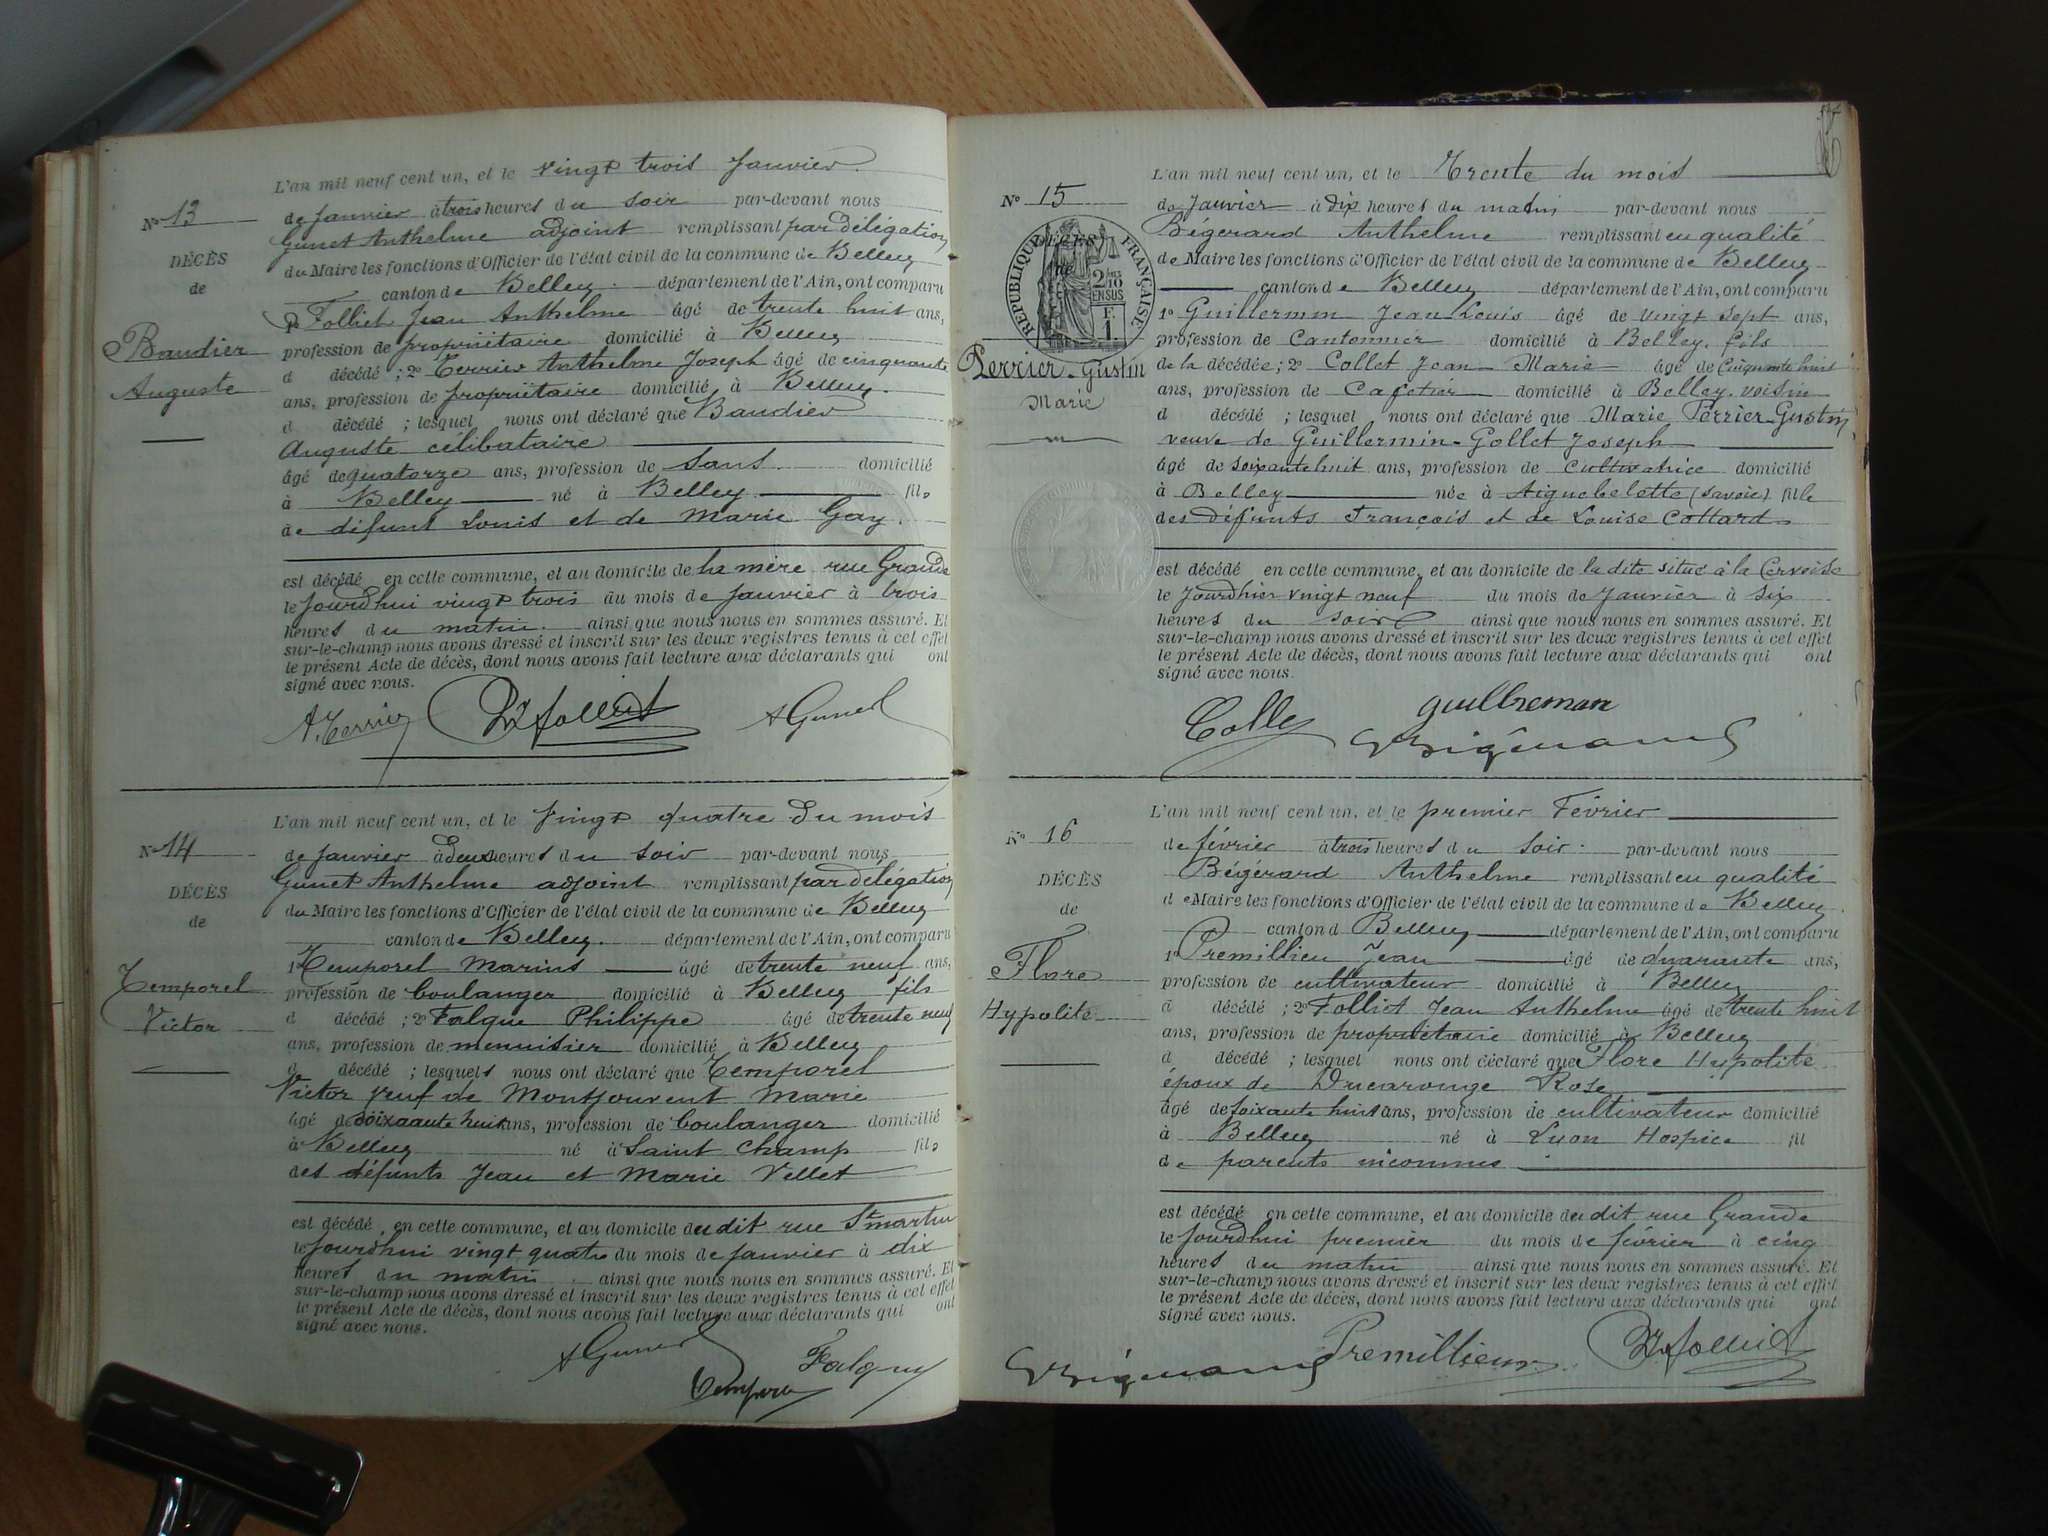 L'an mil neuf cent un, et le vingt trois Janvier
No 13
de Janvier à trois heures du soir par-devant nous
Gunet Anthelme adjoint remplissant par délégation
DÉCÈS
du Maire les fonctions d'Officier de l'état civil de la commune de Belley
de
canton de Belley département de l'Ain, ont comparu
1o Folliet Jean Anthelme âgé de trente huit ans,
Baudier
profession de propriétaire domicilié à Belley
d décédé ; 2o Terrier Anthelme Joseph âgé de cinquante
Auguste
ans, profession de propriétaire domicilié à Belley.
d décédé ; lesquel nous ont déclaré que Baudier
Auguste célibataire
âgé de quatorze ans, profession de sans domicilié
à Belley né à Belley fils
de défunt Louis et de Marie Gay.
est décédé en cette commune, et au domicile de la mère rue Grande
le jourdhui vingt trois du mois de Janvier à trois
heures du matin. ainsi que nous nous en sommes assuré. Et
sur-le-champ nous avons dressé et inscrit sur les deux registres tenus à cet effet
le présent Acte de décès, dont nous avons fait lecture aux déclarants qui ont
signé avec nous.
A. Terrier Folliet A Gunet
L'an mil neuf cent un, et le Vingt quatre du mois
No 14
de Janvier à deux heures du soir par-devant nous
Gunet Anthelme adjoint remplissant par délégation
DÉCÈS
du Maire les fonctions d'Officier de l'état civil de la commune de Belley
de
canton de Belley. département de l'Ain, ont comparu
1o Temporel Marius âgé de trente neuf ans,
Temporel
profession de boulanger domicilié à Belley fils
d décédé ; 2o Falque Philippe âgé de trente neuf
Victor
ans, profession de menuisier domicilié à Belley
d décédé ; lesquels nous ont déclaré que Temporel
Victor veuf de Montjouvent Marie
âgé de soixante huit ans, profession de boulanger domicilié
à Belley né à Saint Champ fils
des défunts Jean et Marie Vellet
est décédé, en cette commune, et au domicile du dit rue St martin
le jourdhui vingt quatre du mois de Janvier à dix
heures du matin ainsi que nous nous en sommes assuré. Et
sur-le-champ nous avons dressé et inscrit sur les deux registres tenus à cet effet
le présent Acte de décès, dont nous avons fait lecture aux déclarants qui ont
signé avec nous.
A Gunet Falque
Temporel
L'an mil neuf cent un, et le Trente du mois
No 15
de Janvier à dix heures du matin par-devant nous
Bégerard Anthelme remplissant en qualité
RÉPUBLIQUE FRANÇAISE
DÉCÈS
de
2/10 EN SUS
F. 1
de Maire les fonctions d'Officier de l'état civil de la commune de Belley
canton de Belley département de l'Ain, ont comparu
1o Guillermin Jean Louis âgé de vingt sept ans,
profession de Cantonnier domicilié à Belley, fils
Perrier-Gustin
de la décédée ; 2o Collet Jean Marie âgé de Cinquante huit
ans, profession de Cafetier domicilié à Belley. voisin
Marie
d décédé ; lesquel nous ont déclaré que Marie Perrier-Gustin
veuve de Guillermin-Gollet Joseph
âgé de soixante huit ans, profession de Cultivatrice domicilié
à Belley née à Aiguebelette (Savoie) fille
des défunts François et de Louise Collard
est décédé en cette commune, et au domicile de la dite situé à la Cervoise
le Jourdhier vingt neuf du mois de Janvier à six
heures du soir ainsi que nous nous en sommes assuré. Et
sur-le-champ nous avons dressé et inscrit sur les deux registres tenus à cet effet
le présent Acte de décès, dont nous avons fait lecture aux déclarants qui ont
signé avec nous.
guillreman
L'an mil neuf cent un, et le premier Février
No 16
de février à trois heures du soir. par-devant nous
Bégérard Anthelme remplissant en qualité
DÉCÈS
de Maire les fonctions d'Officier de l'état civil de la commune de Belley
de
canton d Belley département de l'Ain, ont comparu
1o Premillieu Jean âgé de quarante ans,
Flore
profession de cultivateur domicilié à Belley
d décédé ; 2o Folliet Jean Anthelme âgé de trente huit
Hypolite
ans, profession de propriétaire domicilié à Belley
d décédé ; lesquel nous ont déclaré que Flore Hypolite
époux de Ducarouge Rose
âgé de soixante huit ans, profession de cultivateur domicilié
à Belley né à Lyon Hospice fil
de parents inconnus
est décédé en cette commune, et au domicile du dit rue Grande
le jourdhui premier du mois de février à cinq
heures du matin ainsi que nous nous en sommes assuré. Et
sur-le-champ nous avons dressé et inscrit sur les deux registres tenus à cet effet
le présent Acte de décès, dont nous avons fait lecture aux déclarants qui ont
signé avec nous.
Premillieux Folliet